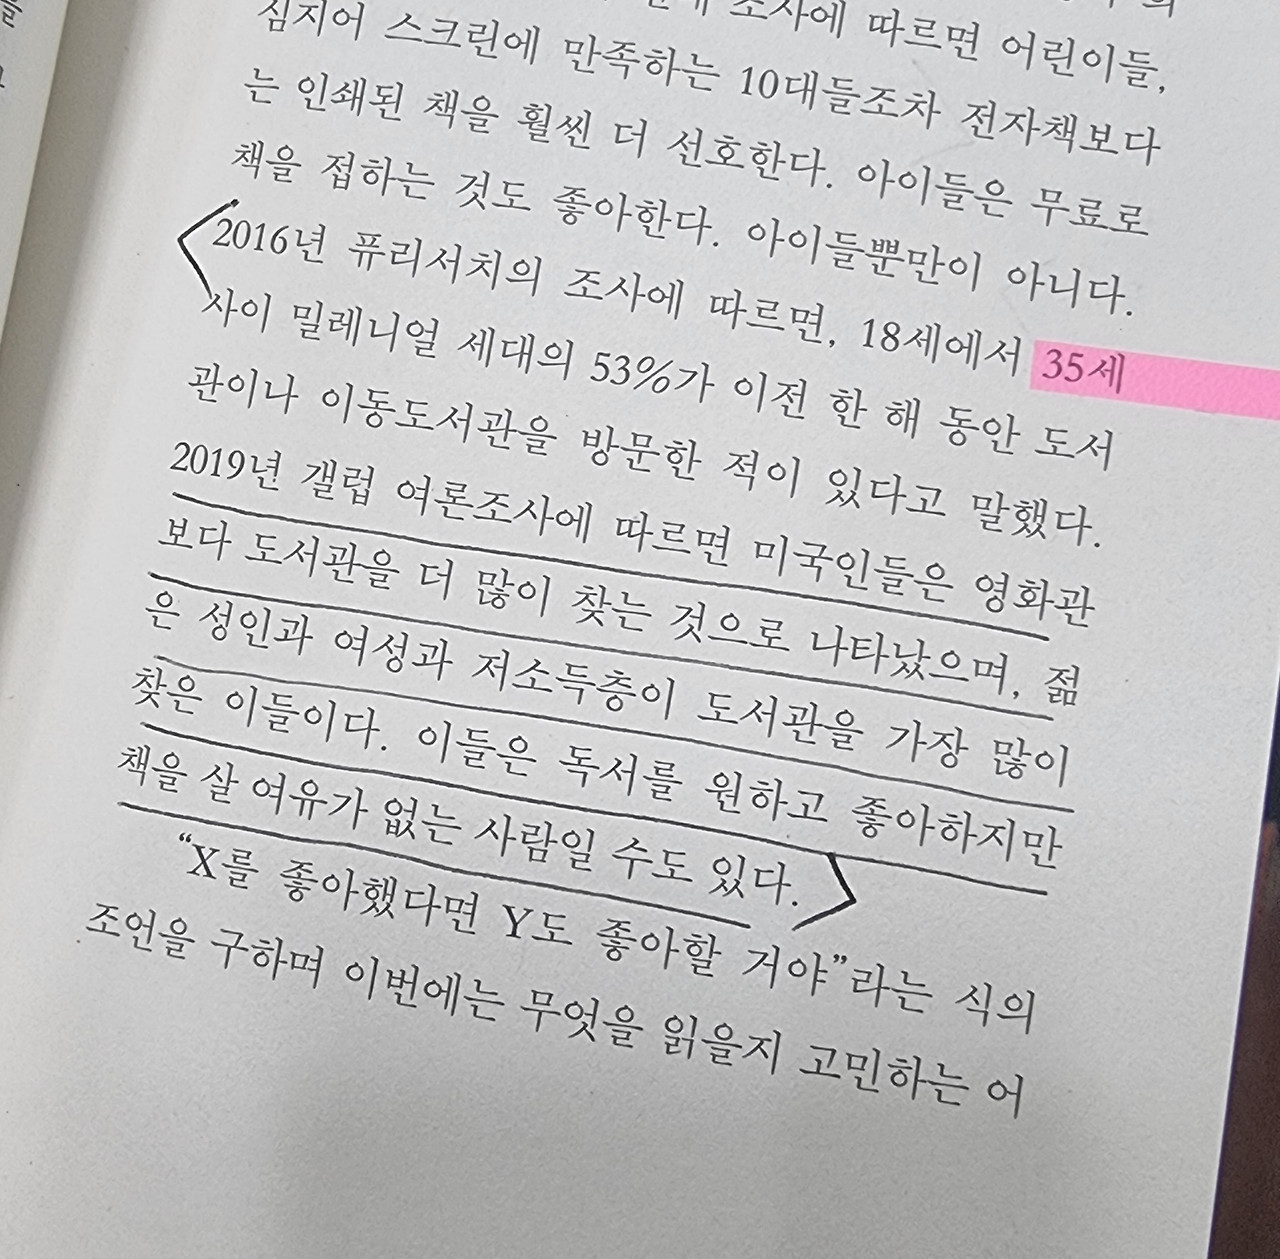 조사에 따르면 어린이들,
심지어 스크린에 만족하는 10대들조차 전자책보다
는 인쇄된 책을 훨씬 더 선호한다. 아이들은 무료로
책을 접하는 것도 좋아한다. 아이들뿐만이 아니다.
2016년 퓨리서치의 조사에 따르면, 18세에서 35세
사이 밀레니얼 세대의 53%가 이전 한 해 동안 도서
관이나 이동도서관을 방문한 적이 있다고 말했다.
2019년 갤럽 여론조사에 따르면 미국인들은 영화관
보다 도서관을 더 많이 찾는 것으로 나타났으며, 젊
은 성인과 여성과 저소득층이 도서관을 가장 많이
찾은 이들이다. 이들은 독서를 원하고 좋아하지만
책을 살 여유가 없는 사람일 수도 있다.
“X를 좋아했다면 Y도 좋아할 거야”라는 식의
조언을 구하며 이번에는 무엇을 읽을지 고민하는 어